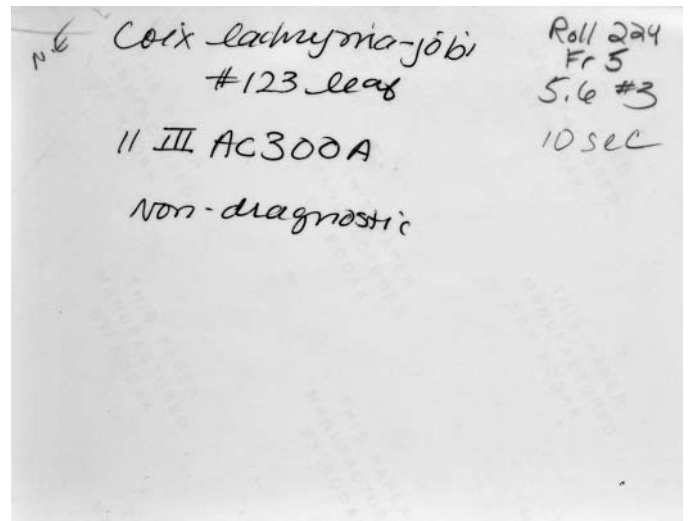 N.
Coix lachryma-jobi
#123 leaf
11 III AC300A
Non-diagnostic
Roll 224
Fr 5
5.6 #3
10 sec
THIS PAPER
MANUFACTURED
BY KODAK